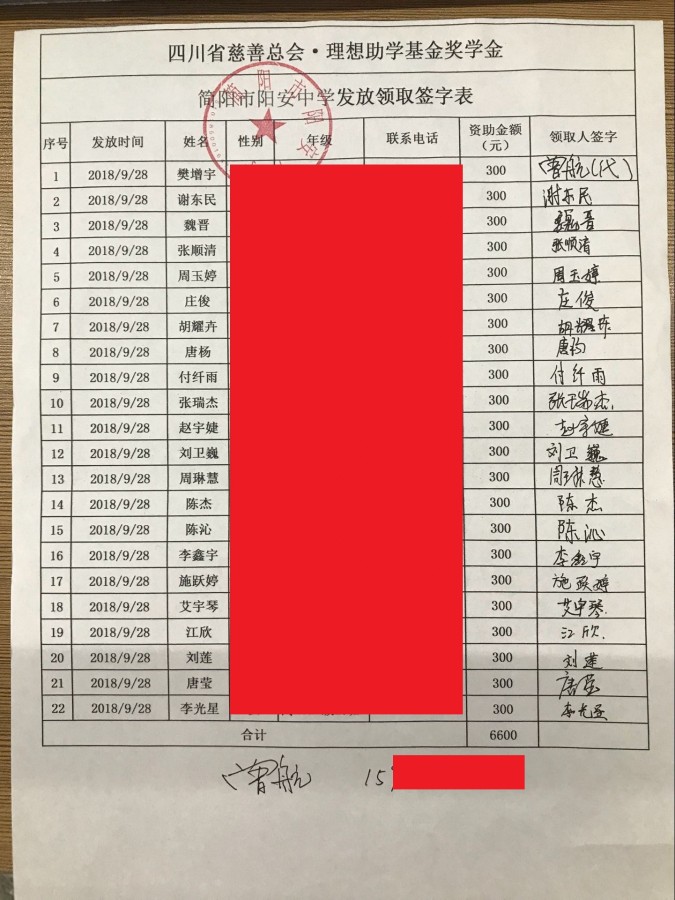 四川省慈善总会·理想助学基金奖学金
简阳市阳安中学发放领取签字表
序号 发放时间 姓名 性别 年级 联系电话 资助金额（元） 领取人签字
1 2018/9/28 樊增宇 300 曾航(代)
2 2018/9/28 谢东民 300 谢东民
3 2018/9/28 魏晋 300 魏晋
4 2018/9/28 张顺清 300 张顺清
5 2018/9/28 周玉婷 300 周玉婷
6 2018/9/28 庄俊 300 庄俊
7 2018/9/28 胡耀卉 300 胡耀卉
8 2018/9/28 唐杨 300 唐杨
9 2018/9/28 付纤雨 300 付纤雨
10 2018/9/28 张瑞杰 300 张瑞杰
11 2018/9/28 赵宇婕 300 赵宇婕
12 2018/9/28 刘卫巍 300 刘卫巍
13 2018/9/28 周琳慧 300 周琳慧
14 2018/9/28 陈杰 300 陈杰
15 2018/9/28 陈沁 300 陈沁
16 2018/9/28 李鑫宇 300 李鑫宇
17 2018/9/28 施跃婷 300 施跃婷
18 2018/9/28 艾宇琴 300 艾宇琴
19 2018/9/28 江欣 300 江欣
20 2018/9/28 刘莲 300 刘莲
21 2018/9/28 唐莹 300 唐莹
22 2018/9/28 李光星 300 李光星
合计 6600
曾航 15